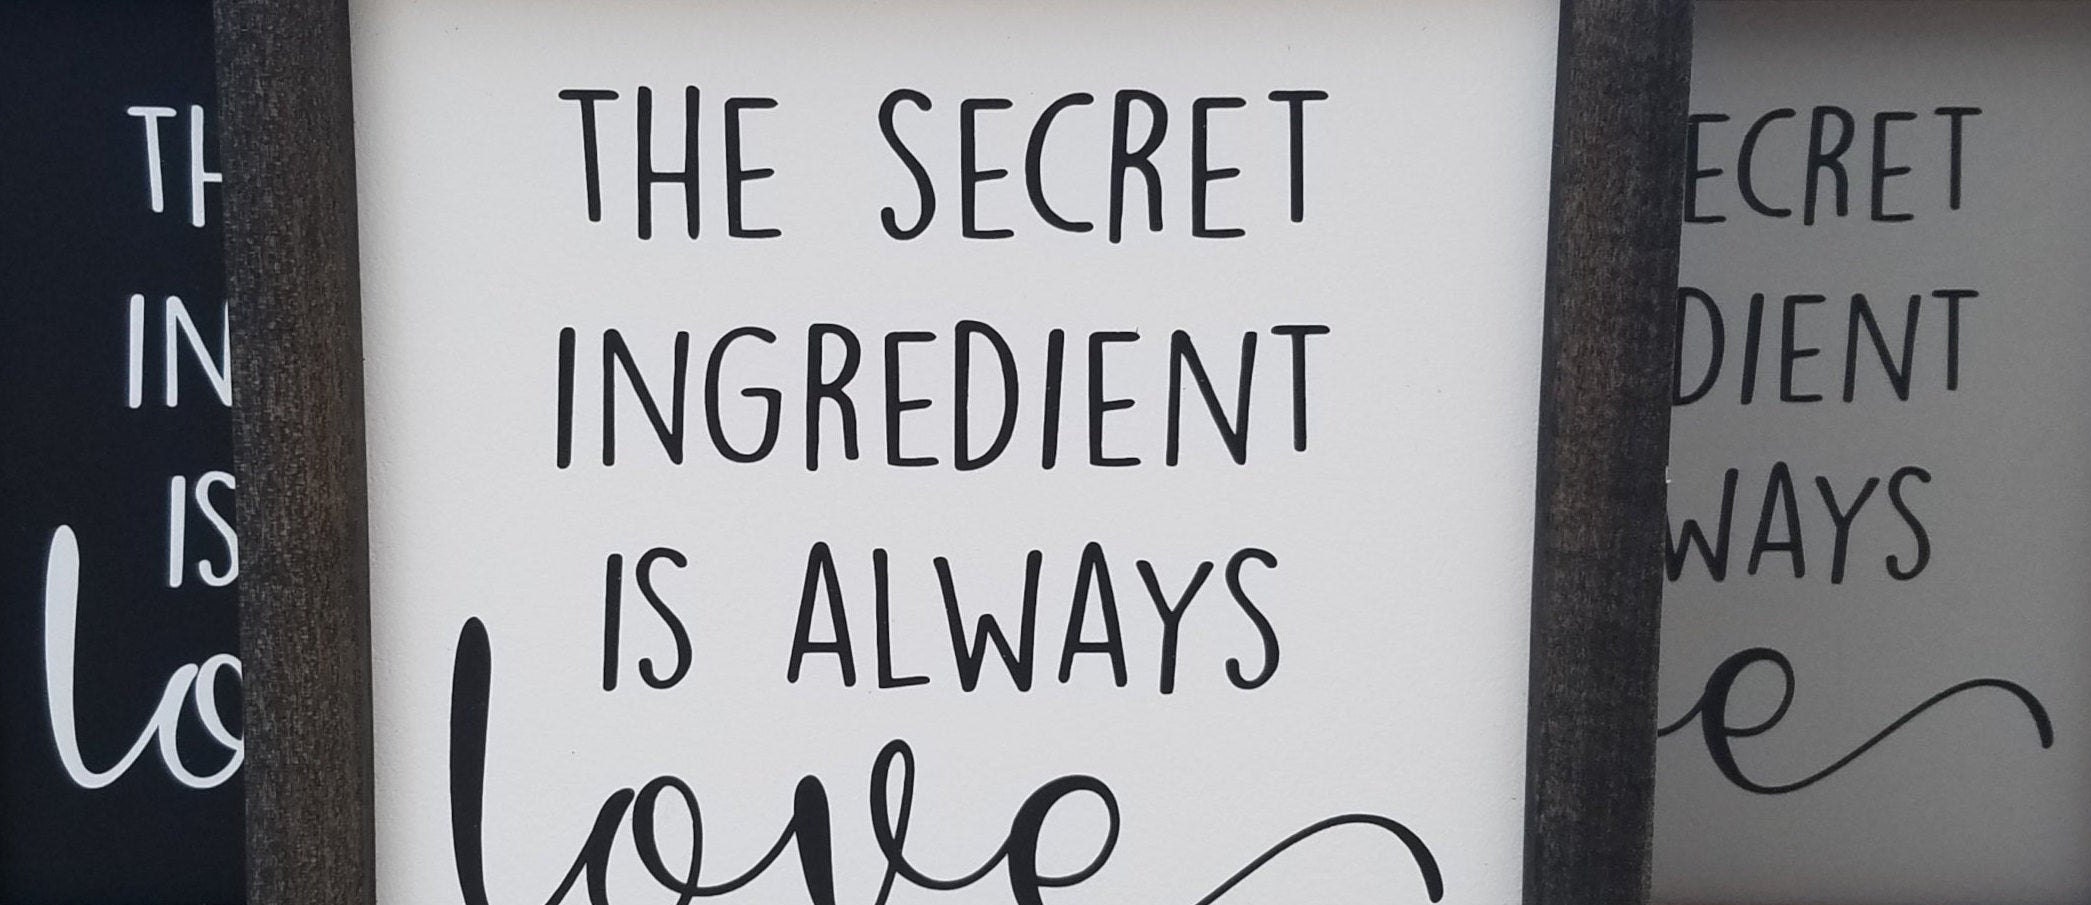 THE SECRET
INGREDIENT
IS ALWAYS
love
TH
IN
IS
lo
ECRET
DIENT
WAYS
e